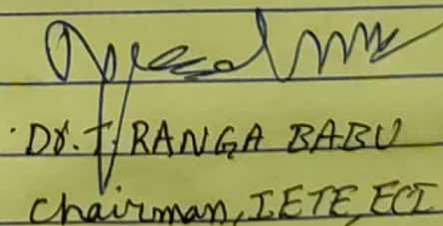 Dr. T. RANGA BABU
Chairman, IETE, ECI